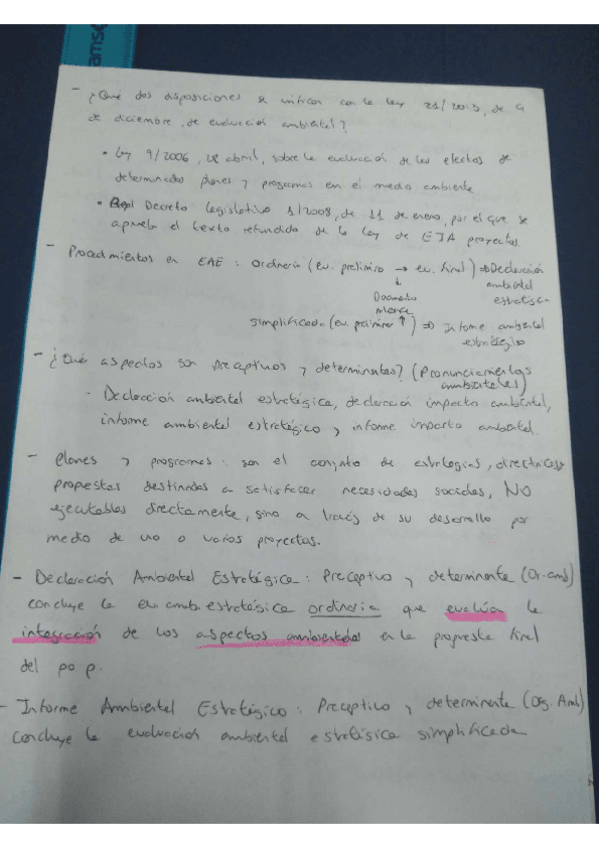 amse
- ¿Qué dos disposiciones se unifican con la ley 21/2013, de 9
de diciembre, de evaluación ambiental?
• Ley 9/2006, 28 abril, sobre la evaluación de los efectos de
determinados planes y programas en el medio ambiente
• Real Decreto legislativo 1/2008, de 11 de enero, por el que se
aprueba el texto refundido de la Ley de EIA proyectos.
- Procedimientos en EAE: Ordinaria (ev. preliminar → ev. final) ⇒ Declaración
ambiental
estratégica
↓
Documento
Simplificada (ev. preliminar ↑) ⇒ Informe ambiental
estratégico
- ¿Qué aspectos son preceptivos y determinantes? (Pronunciamientos
ambientales)
- Declaración ambiental estratégica, declaración impacto ambiental,
informe ambiental estratégico y informe impacto ambiental.
- Planes y programas: son el conjunto de estrategias, directrices y
propuestas destinadas a satisfacer necesidades sociales, NO
ejecutables directamente, sino a través de su desarrollo por
medio de uno o varios proyectos.
- Declaración Ambiental Estratégica: Preceptivo y determinante (Or. amb)
concluye la ev. amb. estratégica ordinaria que evalúa la
integración de los aspectos ambientales en la propuesta final
del p o p.
- Informe Ambiental Estratégico: Preceptivo y determinante (Org. Amb)
concluye la evaluación ambiental estratégica simplificada